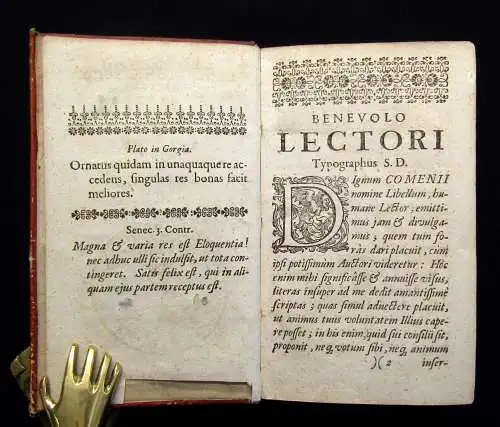 Plato in Gorgia.
Ornatus quidam in unaquaque re ac-
cedens, singulas res bonas facit
meliores.
Senec. 3. Contr.
Magna & varia res est Eloquentia!
nec adhuc ulli sic indulsit, ut tota con-
tingeret. Satis felix est, qui in ali-
quam ejus partem receptus est.
BENEVOLO
LECTORI
Typographus S. D.
DIgnum COMENII
nomine Libellum, hu-
mane Lector, emitti-
mus jam & divulga-
mus; quem tum fo-
ràs dari placuit, cum
ipsi potissimum Auctori videretur: Hic
enim mihi significâsse & annuisse visus,
literas insuper ad me dedit amantissimè
scriptas; quas simul advectere placuit,
ut animus tuus voluntatem Illius cape-
re posset; in his enim, quid sui consilii sit,
proponit, neq, votum sibi, neq, animum
)( 2 inser-